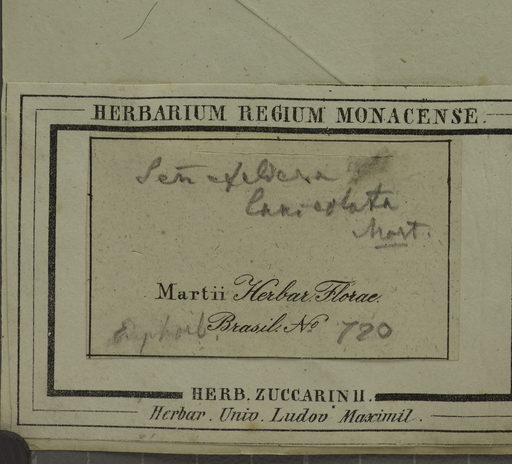 HERBARIUM REGIUM MONACENSE.
Senefeldera
lanceolata
Mart.
Martii Herbar. Florae
Euphorb. Brasil. No 720
HERB. ZUCCARINII.
Herbar. Univ. Ludov. Maximil.